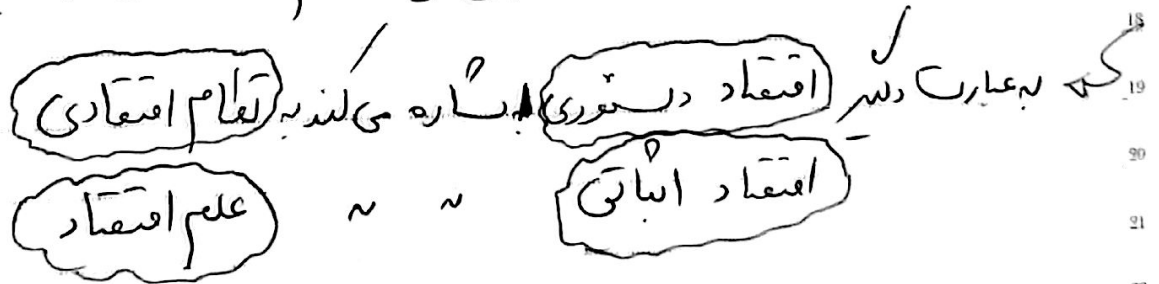 18
19 به عبارت دیگر اقتصاد دستوری اشاره می کند به نظام اقتصادی
20
اقتصاد اثباتی 〃 〃 علم اقتصاد
21